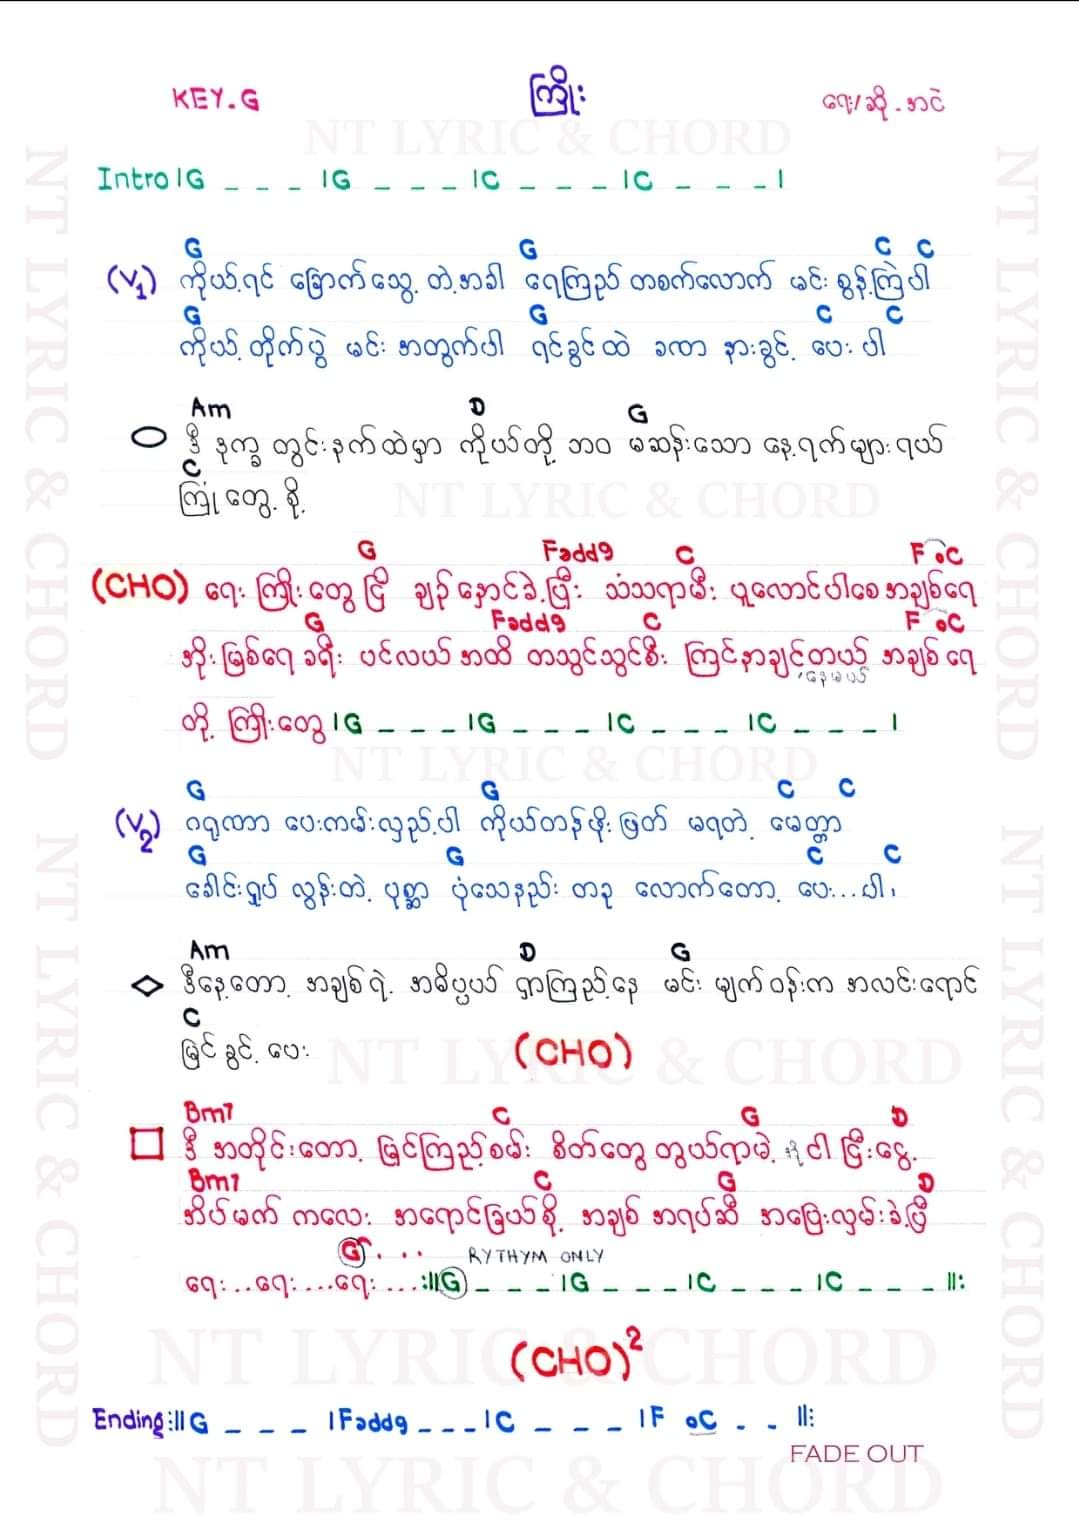 KEY.G ကြိုး ရေး/ဆို - အငဲ
Intro |G _ _ _ |G _ _ _ |C _ _ _ |C _ _ _ |
G G C C
(V1) ကိုယ့်ရင် ခြောက်သွေ့တဲ့အခါ ရေကြည်တစက်လောက် မင်းစွန့်ကြဲပါ
G G C C
ကိုယ့်တိုက်ပွဲ မင်းအတွက်ပါ ရင်ခွင်ထဲ ခဏ နားခွင့်ပေးပါ
Am D G
ဒီ ဒုက္ခတွင်းနက်ထဲမှာ ကိုယ်တို့ဘဝ မဆန်းသော နေ့ရက်များရယ်
C
ကြုံတွေ့စို့
G Fadd9 C F °C
(CHO) ရေး ကြိုးတွေ ငြိ ချည်နှောင်ခဲ့ပြီး သံသရာမီး ပူလောင်ပါစေ အချစ်ရေ
G Fadd9 C F °C
အိုး မြစ်ရေ ခရီး ပင်လယ်အထိ တသွင်သွင်စီး ကြင်နာချင့်တယ် အချစ်ရေ
နေမယ်
တို့ ကြိုးတွေ |G _ _ _ |G _ _ _ |C _ _ _ |C _ _ _ |
G G C C
(V2) ဂရုဏာ ပေးကမ်းလှည့်ပါ ကိုယ်တန်ဖိုးဖြတ် မရတဲ့ မေတ္တာ
G G C C
ခေါင်းရှုပ်လွန်းတဲ့ ပုစ္ဆာ ပုံသေနည်း တခု လောက်တော့ ပေး...ပါ
Am D G
ဒီနေ့တော့ အချစ်ရဲ့ အဓိပ္ပယ် ရှာကြည့်နေ မင်း မျက်ဝန်းက အလင်းရောင်
C
မြင်ခွင့်ပေး (CHO)
Bm7 C G D
ဒီ အတိုင်းတော့ မြင်ကြည့်စမ်း စိတ်တွေ တွယ်ရာမဲ့ ငါ ငြီးငွေ့
Bm7 C G D
အိပ်မက် ကလေး အရောင်ခြယ်စို့ အချစ် အရပ်ဆီ အပြေးလှမ်းခဲ့ပြီ
G... RYTHYM ONLY
ရေး...ရေး...ရေး...:||G _ _ _ |G _ _ _ |C _ _ _ |C _ _ _ ||:
(CHO)²
Ending:||G _ _ _ |Fadd9 _ _ _ |C _ _ _ |F °C _ _ ||:
FADE OUT
NT LYRIC & CHORD